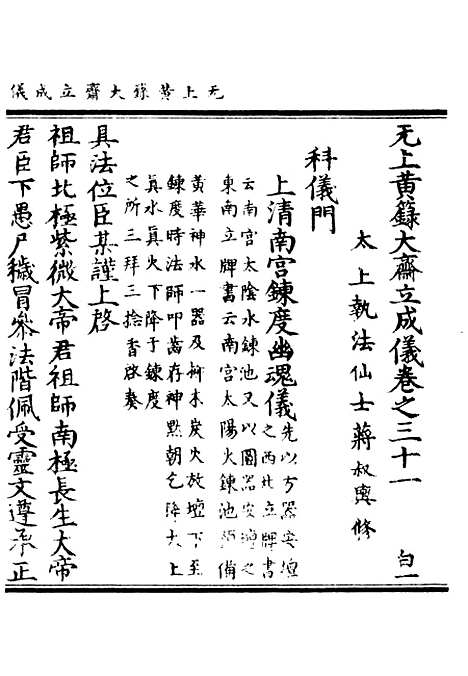 无上黃籙大齋立成儀
无上黃籙大齋立成儀卷之三十一
白一
太上執法仙士蔣叔輿修
科儀門
上清南宮鍊度幽魂儀
先以方器安壇
之西北立牌書
云南宮太陰水鍊池又以圓器安壇之
東南立牌書云南宮太陽火鍊池預備
黃華神水一器及析木炭火放壇下至
鍊度時法師叩齒存神默朝乞降太上
真水真火下降于鍊度
之所三拜三捻香啓奏
具法位臣某謹上啓
祖師北極紫微大帝君祖師南極長生大帝
君臣下愚尸穢冒參法階佩受靈文遵承正